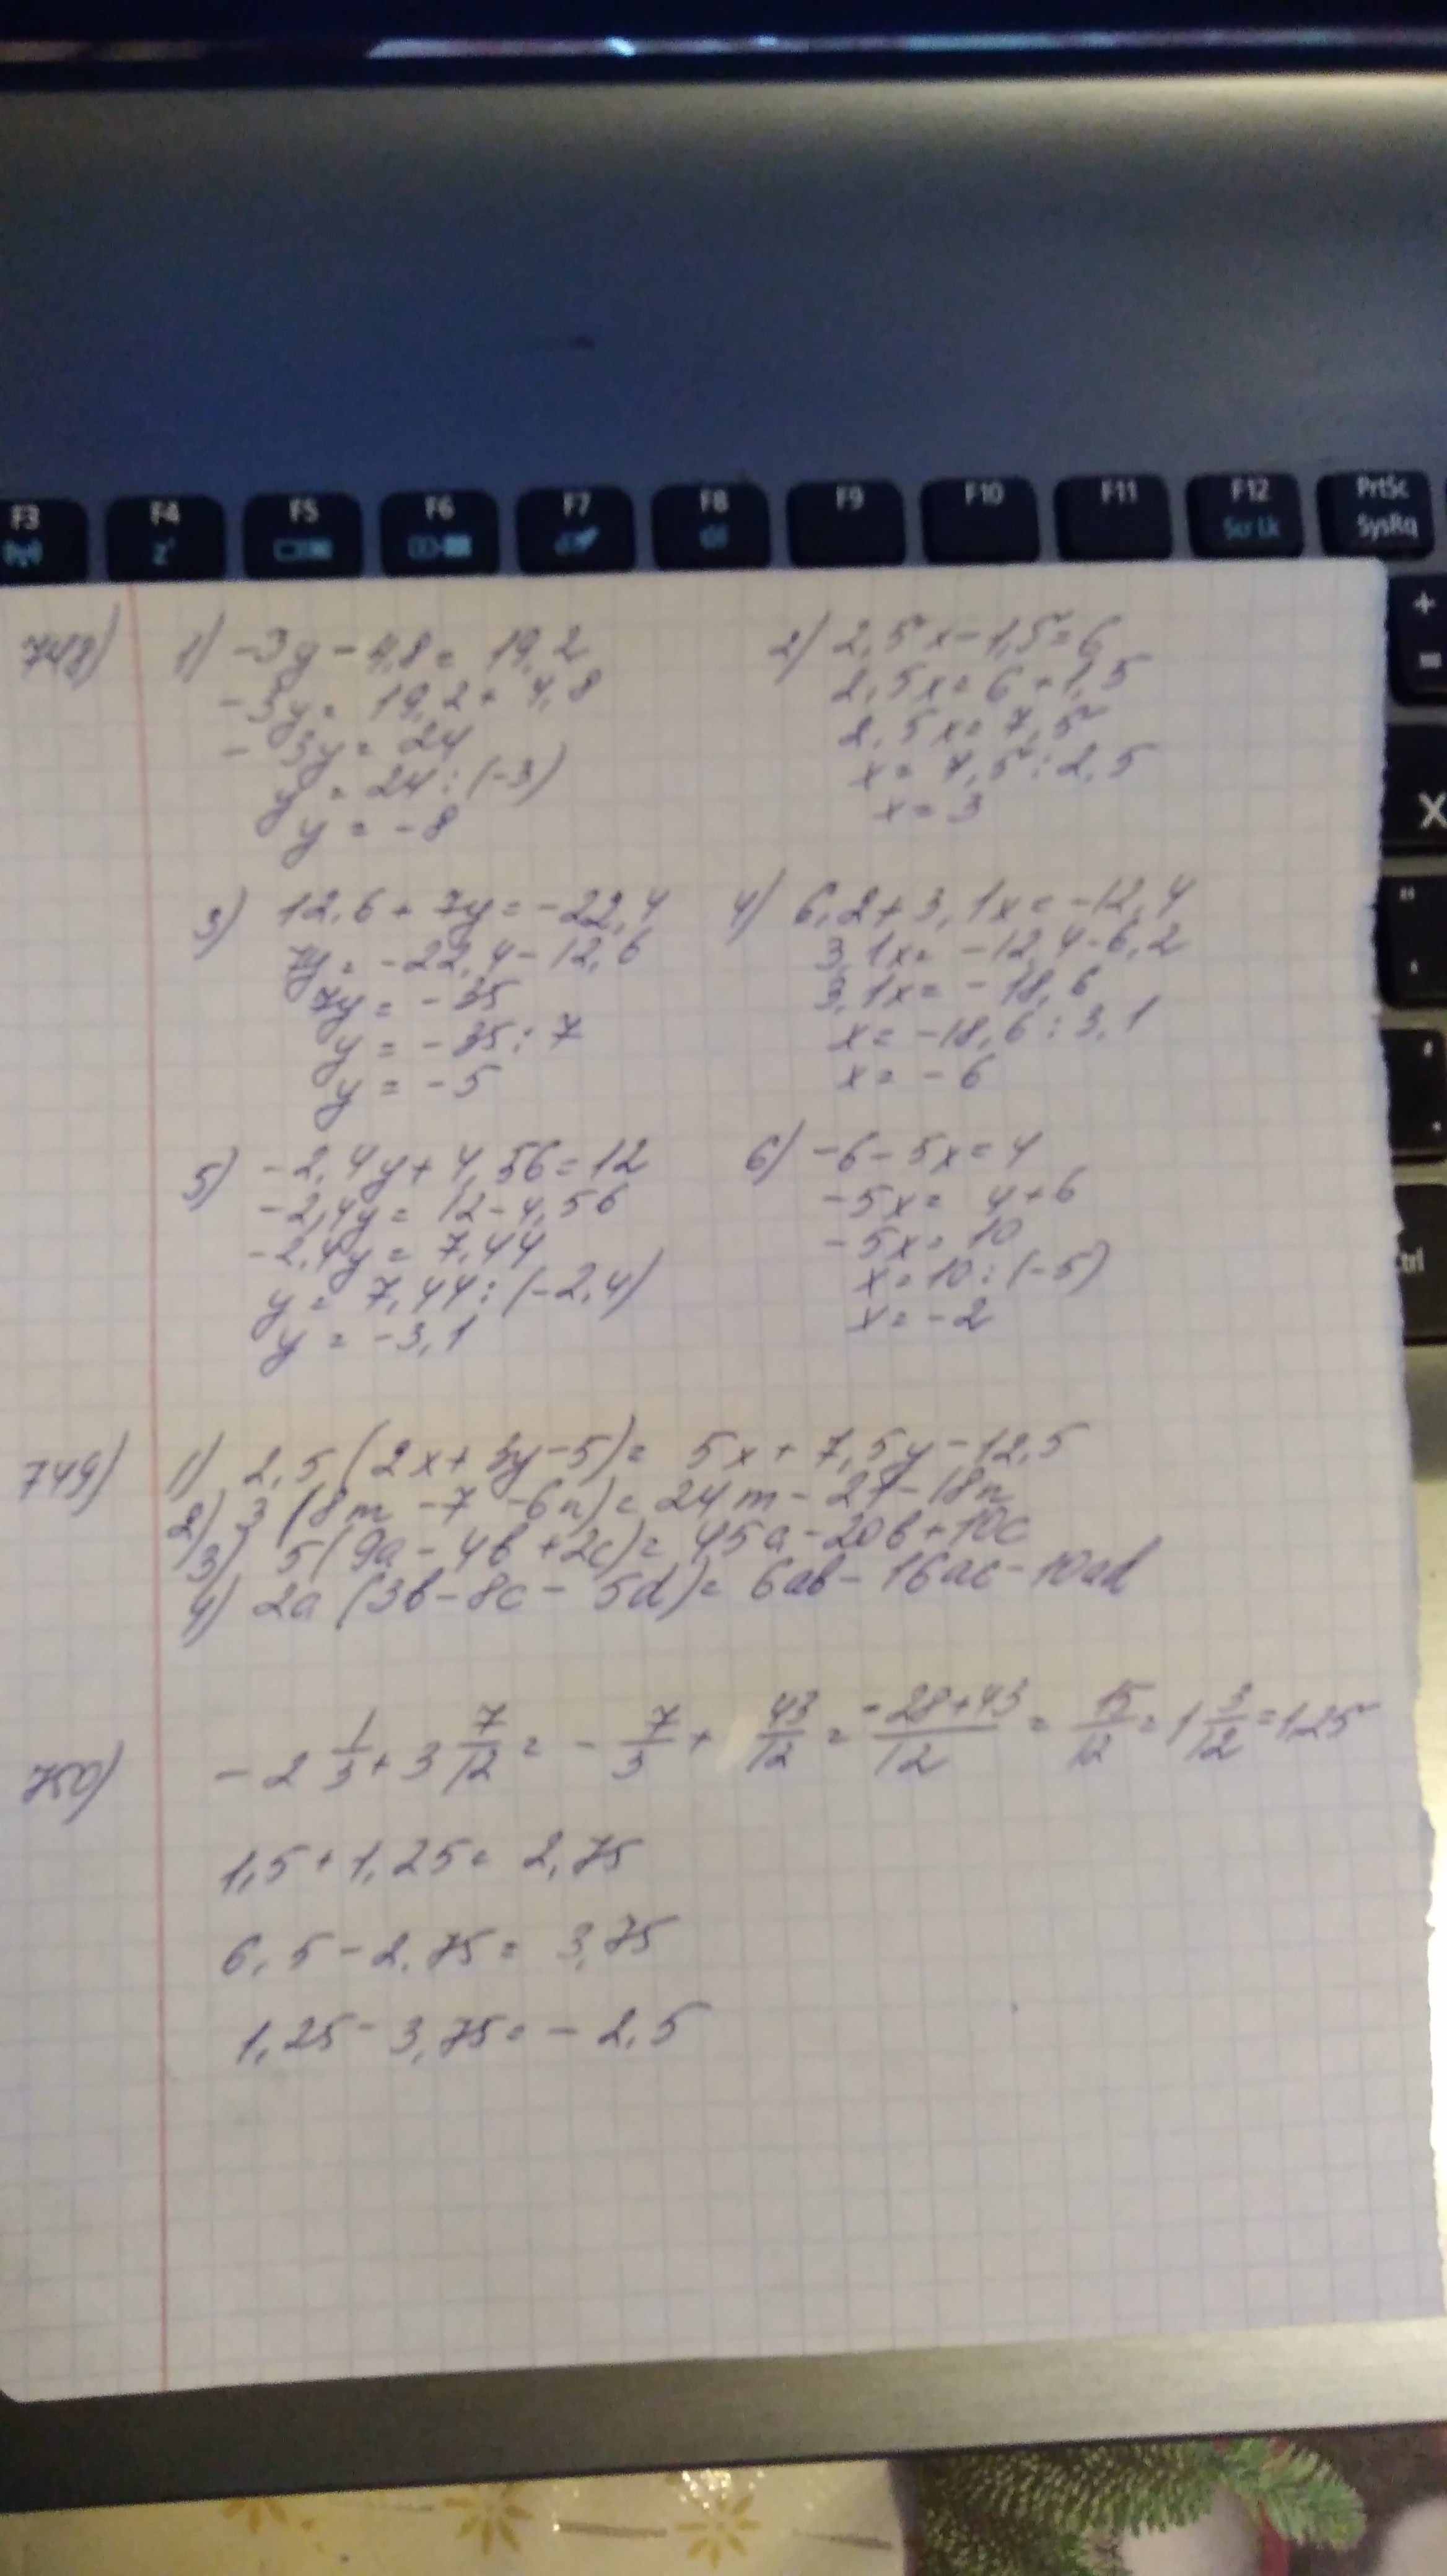 F3 F4 F5 F6 F7 F8 F9 F10 F11 F12 PrtSc
z² Scr Lk SysRq
+
=
X
Ctrl
748) 1) -3y - 4,8 = 19,2
-3y = 19,2 + 4,8
-3y = 24
y = 24 : (-3)
y = -8
2) 2,5x - 1,5 = 6
2,5x = 6 + 1,5
2,5x = 7,5
x = 7,5 : 2,5
x = 3
3) 12,6 + 7y = -22,4
7y = -22,4 - 12,6
7y = -35
y = -35 : 7
y = -5
4) 6,2 + 3,1x = -12,4
3,1x = -12,4 - 6,2
3,1x = -18,6
x = -18,6 : 3,1
x = -6
5) -2,4y + 4,56 = 12
-2,4y = 12 - 4,56
-2,4y = 7,44
y = 7,44 : (-2,4)
y = -3,1
6) -6 - 5x = 4
-5x = 4 + 6
-5x = 10
x = 10 : (-5)
x = -2
749) 1) 2,5 (2x + 3y - 5) = 5x + 7,5y - 12,5
2) 3 (8m - 7 - 6n) = 24m - 21 - 18n
3) 5 (9a - 4b + 2c) = 45a - 20b + 10c
4) 2a (3b - 8c - 5d) = 6ab - 16ac - 10ad
750) -2 1/3 + 3 7/12 = - 7/3 + 43/12 = -28+43/12 = 15/12 = 1 3/12 = 1,25
1,5 + 1,25 = 2,75
6,5 - 2,75 = 3,75
1,25 - 3,75 = -2,5